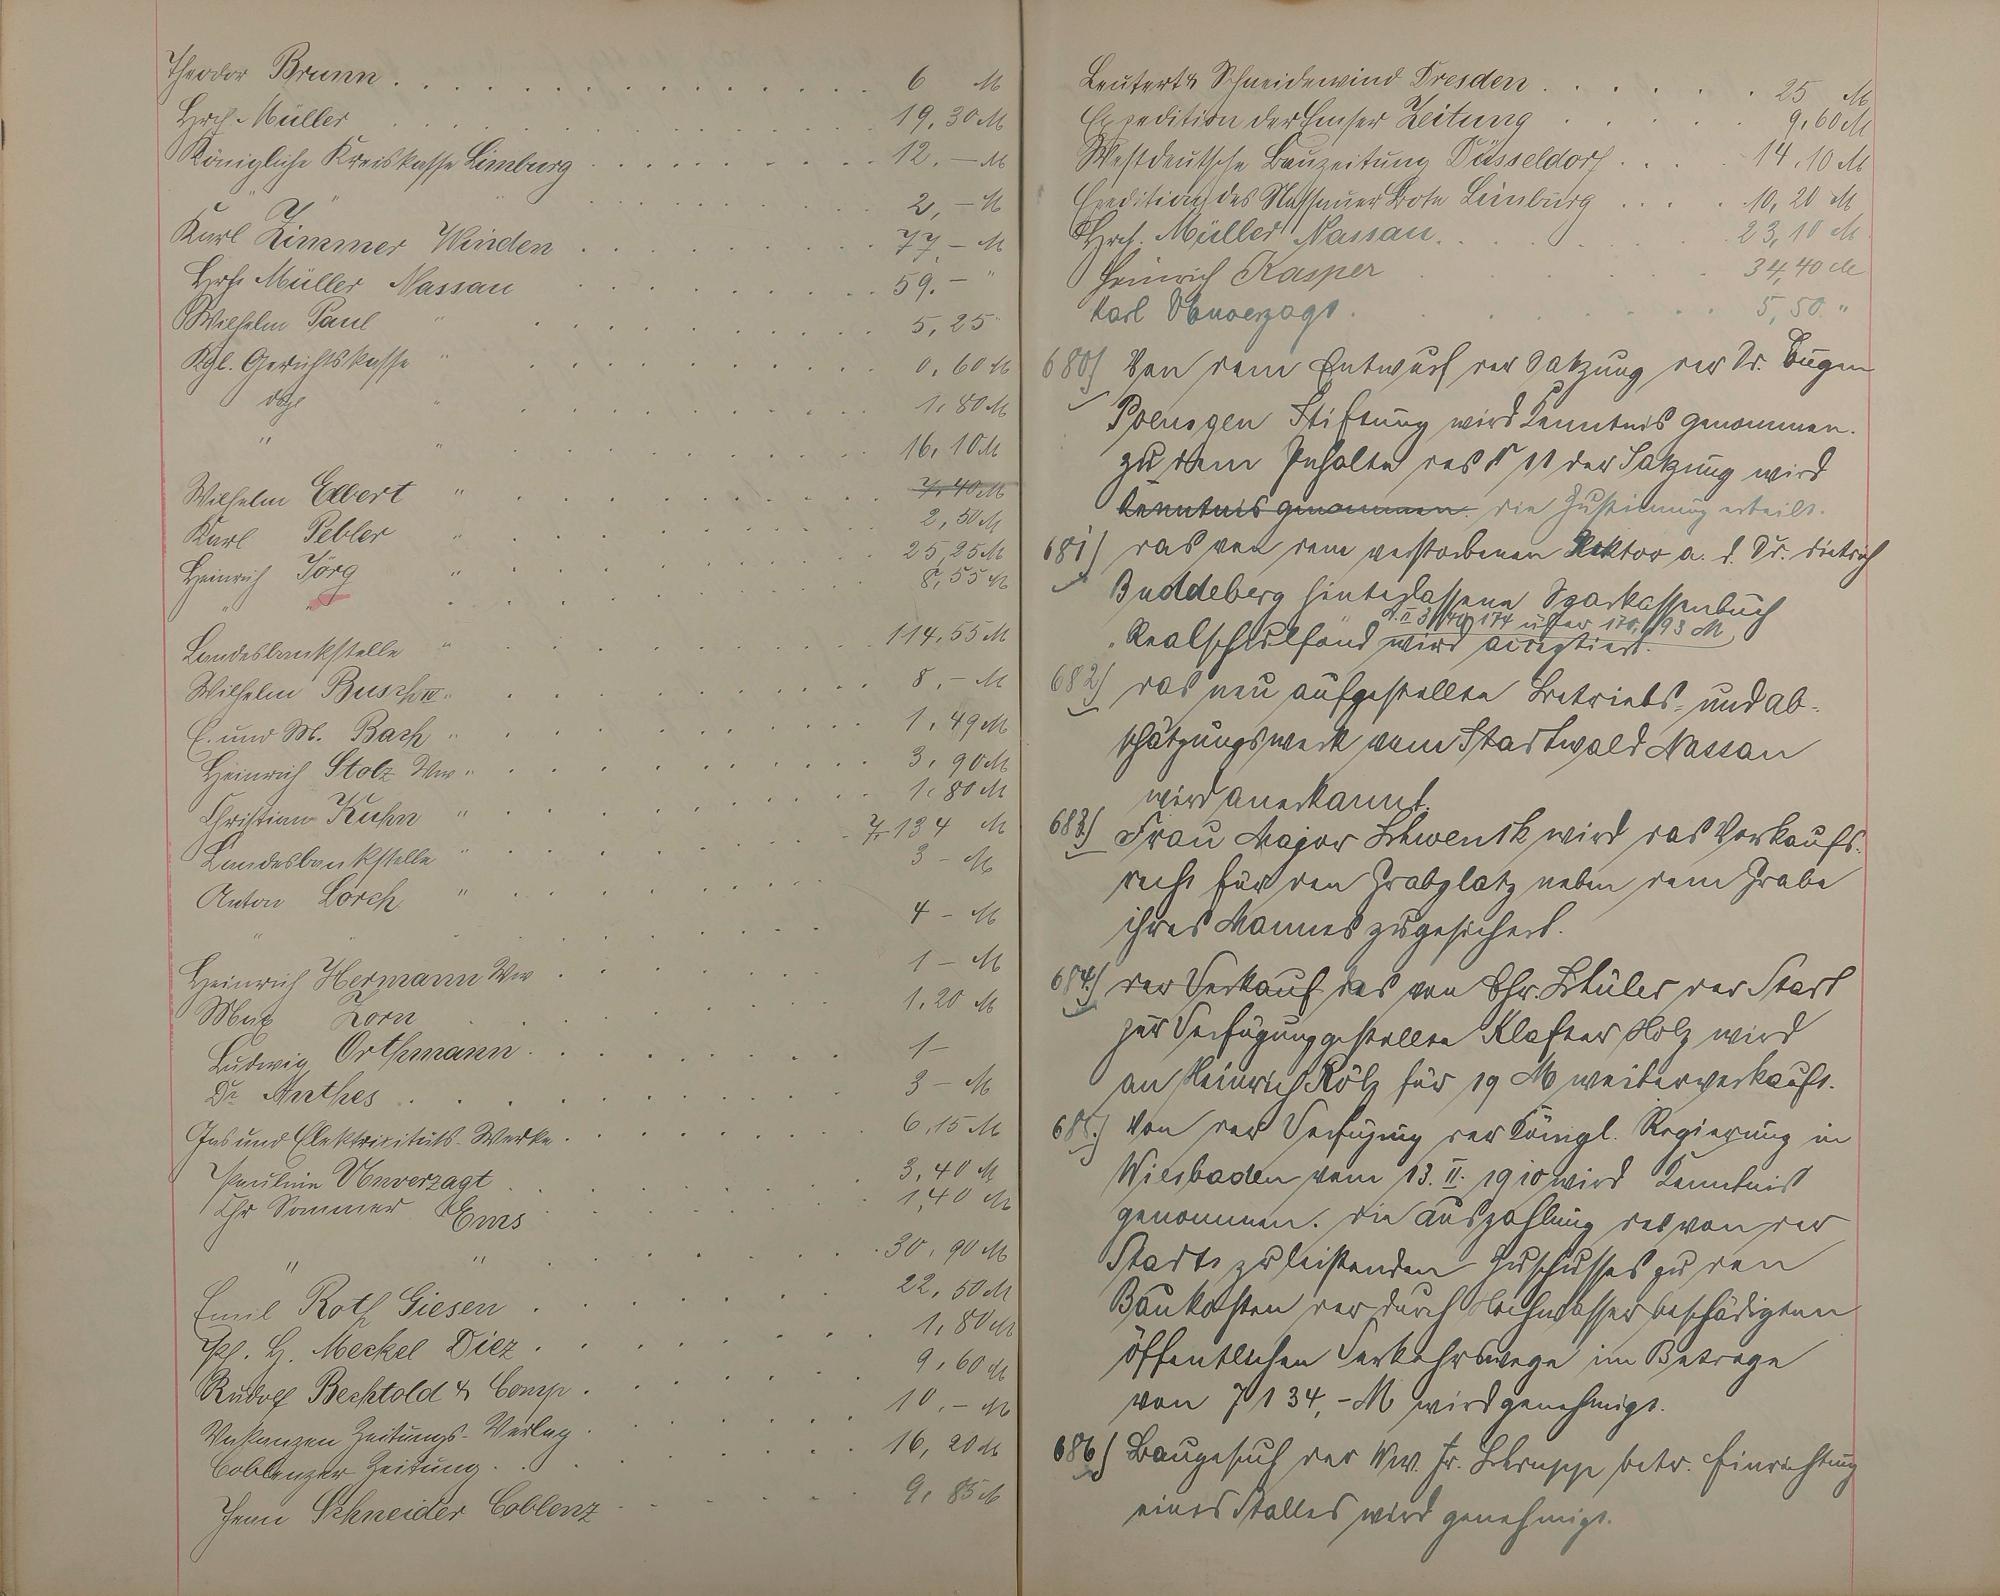 Theodor Brunn . . . . . . . . . . . . . . 6 M
Hrch. Müller . . . . . . . . . . . . . . 19,30 M
Königliche Kreiskasse Limburg . . . . . . . . . 12,— M
" " . . . . . . . . . 2,— M
Karl Zimmer Winden . . . . . . . . . 77,— M
Hrch Müller Nassau . . . . . . . . . 59.— "
Wilhelm Paul " . . . . . . . . . 5,25 "
Kgl. Gerichtskasse " . . . . . . . . . 0,60 M
dsgl " . . . . . . . . . 1,80 M
" " . . . . . . . . . 16,10 M
Wilhelm Elbert " . . . . . . . . . 7,40 M
Karl Pebler " . . . . . . . . . 2,50 M
Heinrich Jörg " . . . . . . . . . 25,25 M
" " . . . . . . . . . 8,55 M
Landesbankstelle " . . . . . . . . . 114,55 M
Wilhelm Busch IV " . . . . . . . . . 8,— M
E. und M. Bach " . . . . . . . . . 1,49 M
Heinrich Stolz Ww " . . . . . . . . . 3,90 M
Christian Kuhn " . . . . . . . . . 1,80 M
Landesbankstelle " . . . . . . . . . 7134 M
Anton Lorch " . . . . . . . . . 3 — M
" " . . . . . . . . . 4 — M
Heinrich Hermann Ww . . . . . . . . . 1 — M
Max Zorn . . . . . . . . . 1,20 M
Ludwig Orthmann . . . . . . . . . 1 —
Dr Anthes . . . . . . . . . 3 — M
Gas und Elektricitäts-Werke . . . . . . . . . 6,15 M
Pauline Unverzagt . . . . . . . . . 3,40 M
Chr Sommer Ems . . . . . . . . . 1,40 M
" " . . . . . . . . . 30,90 M
Emil Roth Giesen . . . . . . . . . 22,50 M
Ph. H. Meckel Diez . . . . . . . . . 1,80 M
Rudolf Bechtold & Comp . . . . . . . . . 9,60 M
Vakanzen Zeitungs-Verlag . . . . . . . . . 10,— M
Coblenzer Zeitung . . . . . . . . . 16,20 M
Schneider Coblenz . . . . . . . . . 9,85 M
Leutert & Schneidewind Dresden . . . . . . 25 M
Expedition der Emser Zeitung . . . . . . 9,60 M
Westdeutsche Bauzeitung Düsseldorf . . . . 14,10 M
Expedition des Nassauer Bote Limburg . . . . 10,20 M
Hrch. Müller Nassau . . . . . . 23,10 M
Heinrich Kasper . . . . . . 34,40 M
Karl Unverzagt . . . . . . 5,50 "
680) Von dem Entwurf der Satzung der Dr. Eugen
Poensgen Stiftung wird Kenntnis genommen.
zu dem Inhalte des § 11 der Satzung wird
Kenntnis genommen. die Zustimmung erteilt.
681) das von dem verstorbenen Rektor a. d. Dr. Dietrich
Buddeberg hinterlassene Sparkassenbuch
174 über 170,93 M
Realschulfond wird acceptiert.
682) das neu aufgestellte Betriebs- und ab-
schätzungswerk vom Stadtwald Nassau
wird anerkannt.
683) Frau Major Schwenck wird das Vorkaufs-
recht für den Grabplatz neben dem Grabe
ihres Mannes zugesichert.
684) der Verkauf des von Chr. Schüler der Stadt
zur Verfügung gestellten Klafter Holz wird
an Heinrich Kölz für 19 M weiterverkauft.
685.) Von der Verfügung der Königl. Regierung in
Wiesbaden vom 13. II. 1910 wird Kenntnis
genommen. die Auszahlung des von der
Stadt zu leistenden Zuschusses zu den
Baukosten der durch Hochwasser beschädigten
öffentlichen Verkehrswege im Betrage
von 7134,— M wird genehmigt.
686) Baugesuch der Ww. Fr. Schrupp betr. Einrichtung
eines Stalles wird genehmigt.